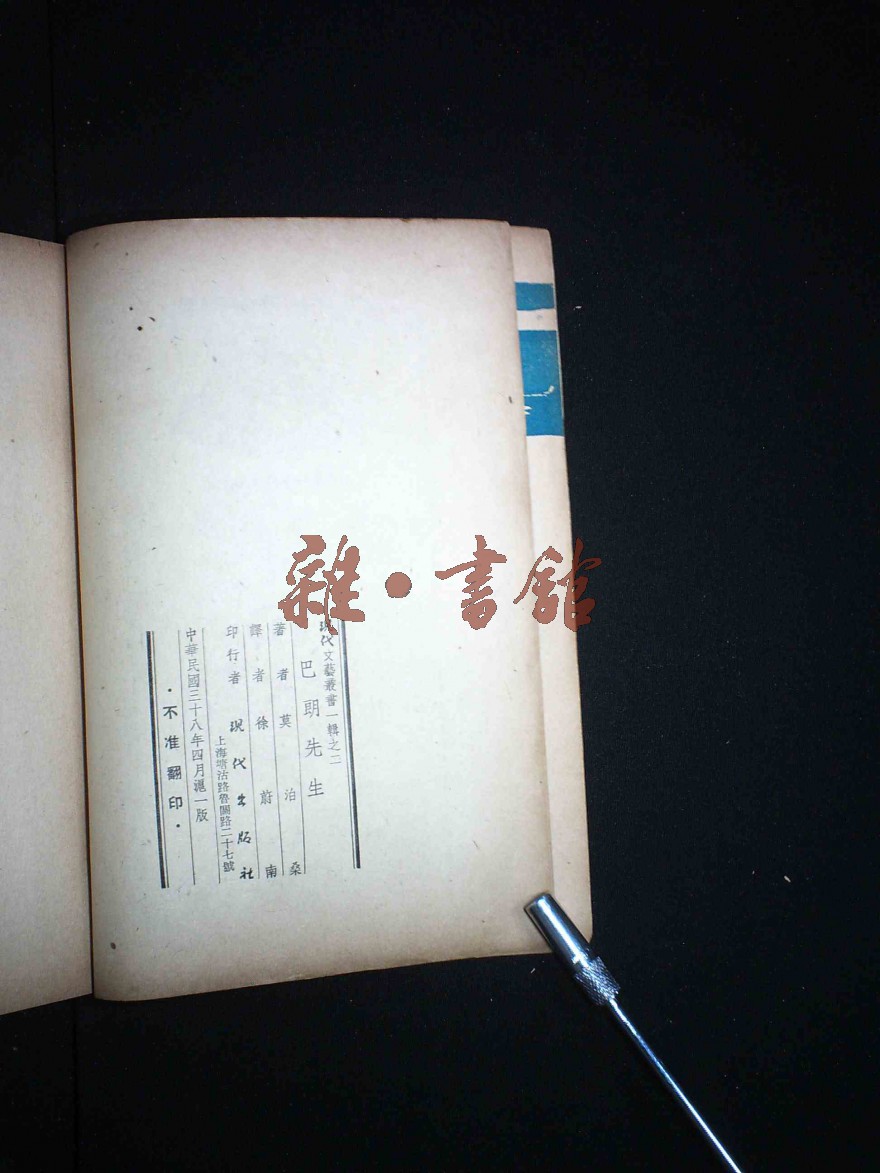 雜•書館
現代文藝叢書一輯之二
巴朗先生
著者 莫泊桑
譯者 徐蔚南
印行者 現代出版社
上海塘沽路魯關路二十七號
中華民國三十八年四月滬一版
•不准翻印•